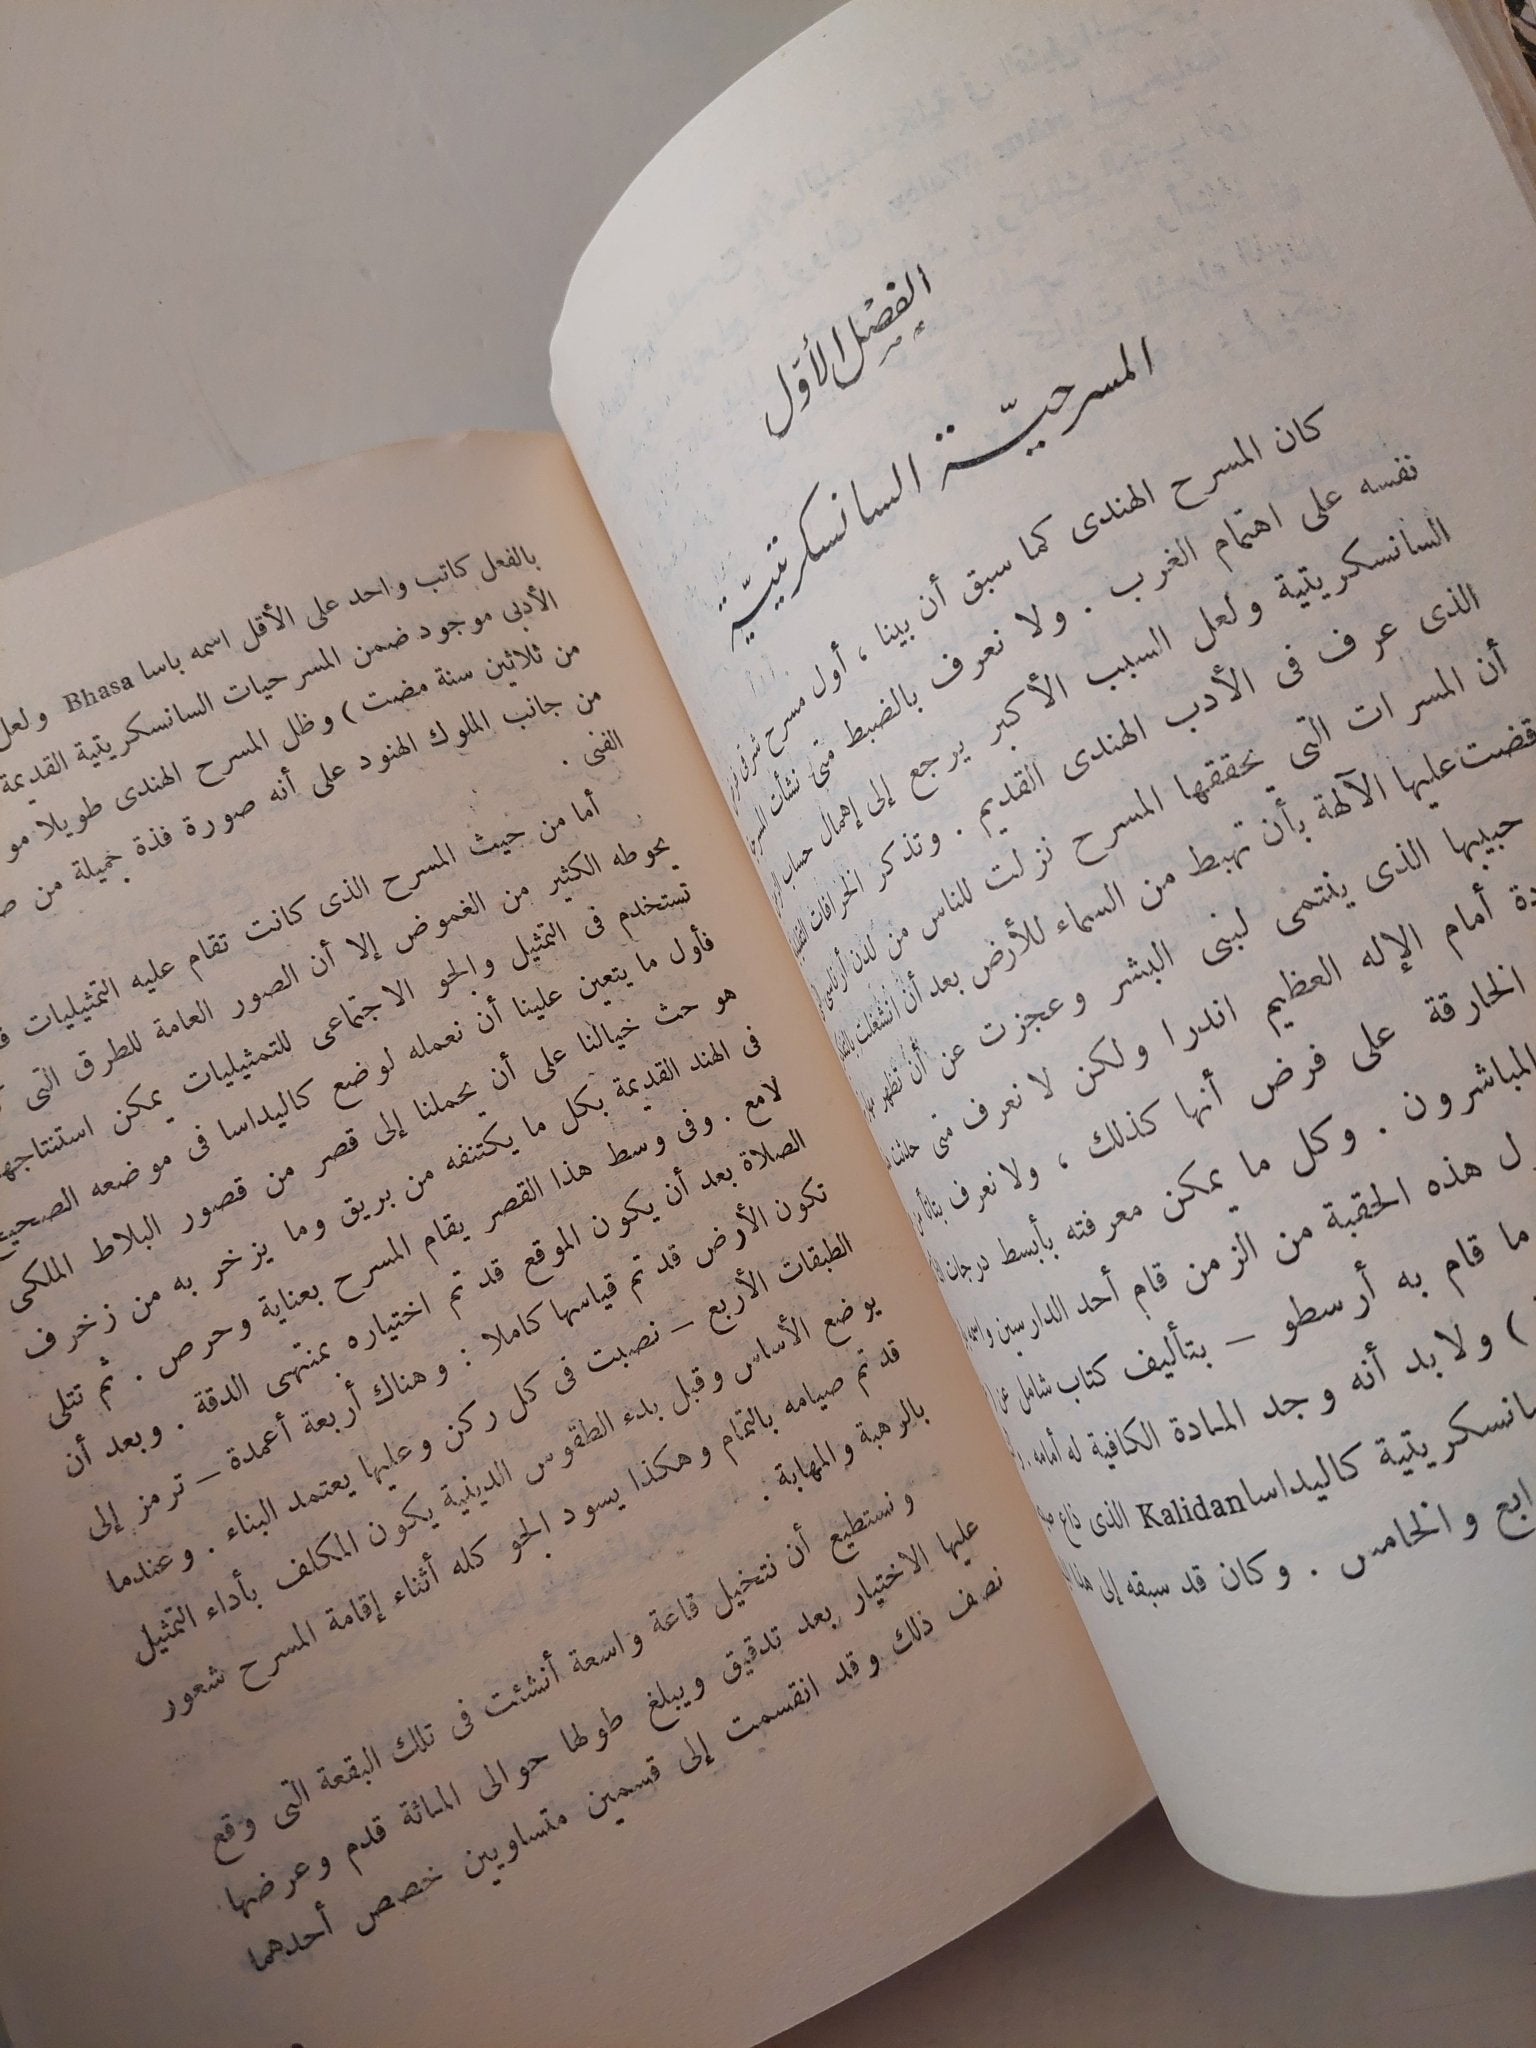 الفصل الأول
المسرحيّة السانسكريتيّة
كان المسرح الهندى كما سبق أن بينا ، أول مسرح شرقى
نفسه على اهتمام الغرب . ولا نعرف بالضبط متى نشأت
السانسكريتية ولعل السبب الأكبر يرجع إلى إهمال حساب
الذى عرف فى الأدب الهندى القديم . وتذكر الخرافات
أن المسرات التى يحققها المسرح نزلت للناس من لدن
قضت عليها الآلهة بأن تهبط من السماء للأرض بعد أن انشغلت
حبيبها الذى ينتمى لبنى البشر وعجزت عن أن تظهر
أمام الإله العظيم اندرا ولكن لا نعرف متى حدثت
الخارقة على فرض أنها كذلك ، ولا نعرف بتاتا من
المباشرون . وكل ما يمكن معرفته بأبسط درجات
هذه الحقبة من الزمن قام أحد الدارسين واسمه
ما قام به أرسطو – بتأليف كتاب شامل عن
) ولابد أنه وجد المادة الكافية له أمامه .
كاليداسا Kalidan الذى ذاع
والخامس . وكان قد سبقه إلى هذا
بالفعل كاتب واحد على الأقل اسمه باسا Bhasa ولعل
الأدبى موجود ضمن المسرحيات السانسكريتية القديمة
من ثلاثين سنة مضت ) وظل المسرح الهندى طويلا
من جانب الملوك الهنود على أنه صورة فذة جميلة من
الفنى .
أما من حيث المسرح الذى كانت تقام عليه التمثيليات
يحوطه الكثير من الغموض إلا أن الصور العامة للطرق التى
تستخدم فى التمثيل والجو الاجتماعى للتمثيليات يمكن استنتاجها
فأول ما يتعين علينا أن نعمله لوضع كاليداسا فى موضعه الصحيح
هو حث خيالنا على أن يحملنا إلى قصر من قصور البلاط الملكى
فى الهند القديمة بكل ما يكتنفه من بريق وما يزخر به من زخرف
لامع . وفى وسط هذا القصر يقام المسرح بعناية وحرص . ثم تتلى
الصلاة بعد أن يكون الموقع قد تم اختياره بمنتهى الدقة . وبعد أن
تكون الأرض قد تم قياسها كاملا : وهناك أربعة أعمدة – ترمز إلى
الطبقات الأربع – نصبت فى كل ركن وعليها يعتمد البناء . وعندما
يوضع الأساس وقبل بدء الطقوس الدينية يكون المكلف بأداء التمثيل
قد تم صيامه بالتمام وهكذا يسود الجو كله أثناء إقامة المسرح شعور
بالرهبة والمهابة .
ونستطيع أن نتخيل قاعة واسعة أنشئت فى تلك البقعة التى وقع
عليها الاختيار بعد تدقيق ويبلغ طولها حوالى المائة قدم وعرضها
نصف ذلك وقد انقسمت إلى قسمين متساويين خصص أحدهما